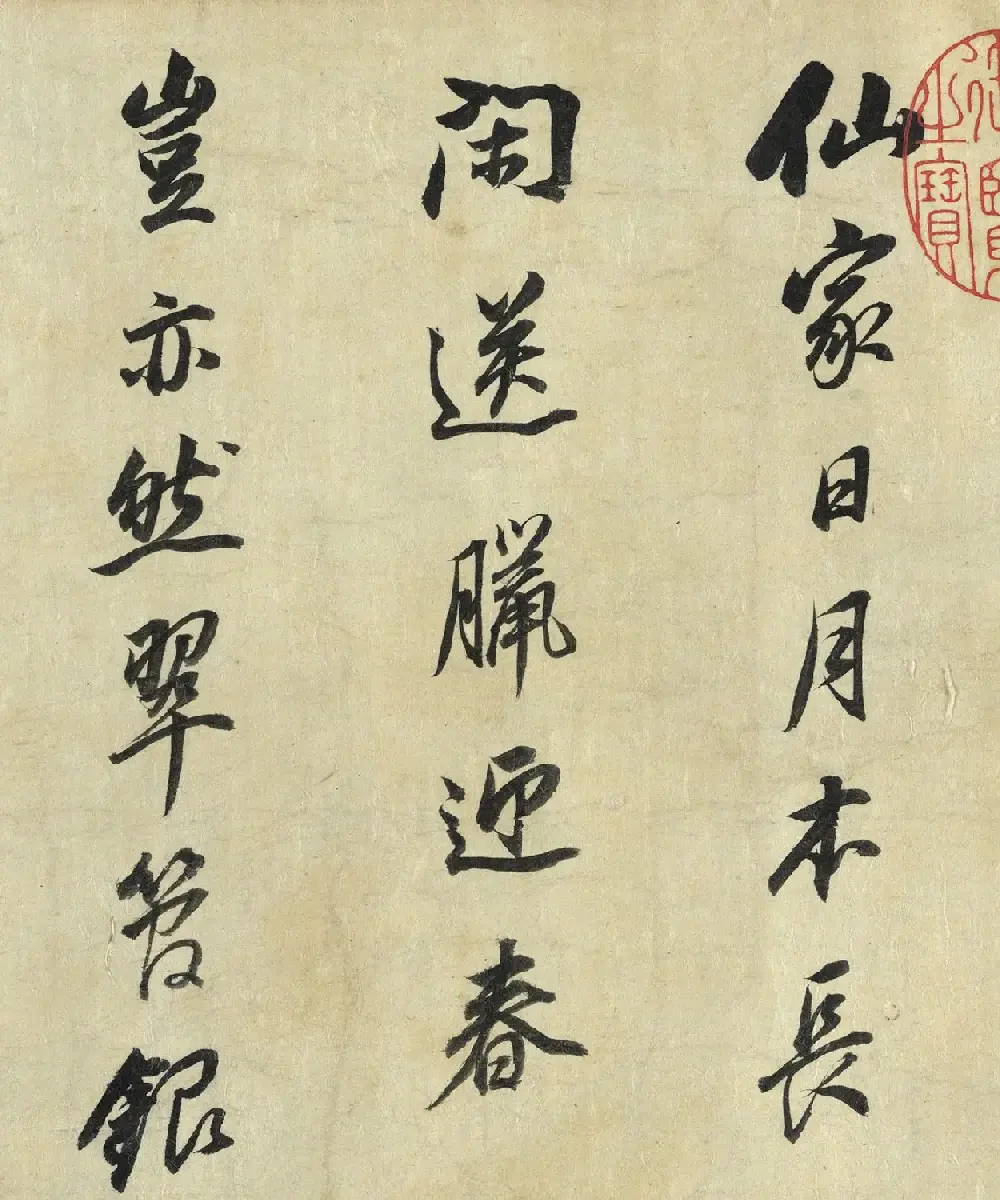 仙家日月本長
閑送臘迎春
豈亦然翠管銀